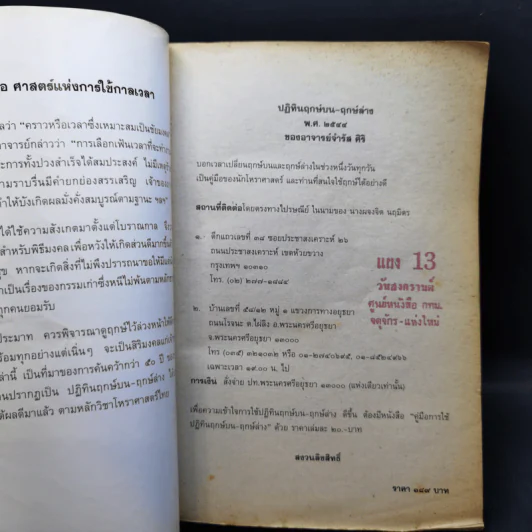 อ ศาสตร์แห่งการใช้กาลเวลา
ลว่า "คราวหรือเวลาซึ่งเหมาะสมเป็นชัยมงคล
อาจารย์กล่าวว่า "การเลือกเฟ้นเวลาที่จะทำ
ะการทั้งปวงสำเร็จได้สมประสงค์ ไม่มีเหตุ
ามราบรื่นมีคำยกย่องสรรเสริญ เจ้าของ
ทำให้บังเกิดผลมั่งคั่งสมบูรณ์ตามฐานะ ฯลฯ"
ได้ใช้ความสังเกตมาตั้งแต่โบราณกาล จึง
สำหรับพิธีมงคลเพื่อหวังให้เกิดส่วนดีมากขึ้น
ข หากจะเกิดสิ่งที่ไม่พึงปรารถนาขอให้มี
เป็นเรื่องของกรรมเก่าซึ่งหนีไม่พ้นตามหลัก
ทุกคนยอมรับ
ประมาท ควรพิจารณาดูฤกษ์ไว้ล่วงหน้าให้
ร้อมทุกอย่างแต่เนิ่นๆ จะเป็นสิริมงคลแก่
ล่านี้ เป็นที่มาของการค้นคว้ากว่า ๕๐ ปี ของ
นปรากฏเป็น ปฏิทินฤกษ์บน-ฤกษ์ล่าง ได้
ได้ผลดีมาแล้ว ตามหลักวิชาโหราศาสตร์ไทย
ปฏิทินฤกษ์บน-ฤกษ์ล่าง
พ.ศ. ๒๕๔๔
ของอาจารย์จำรัส ศิริ
บอกเวลาเปลี่ยนฤกษ์บนและฤกษ์ล่างในช่วงหนึ่งวันทุกวัน
เป็นคู่มือของนักโหราศาสตร์ และท่านที่สนใจใช้ฤกษ์ได้อย่างดี
สถานที่ติดต่อโดยตรงทางไปรษณีย์ ในนามของ นางผจงจิต นฤมิตร
๑.- ตึกแถวเลขที่ ๓๘ ซอยประชาสงเคราะห์ ๒๖
ถนนประชาสงเคราะห์ เขตห้วยขวาง
กรุงเทพฯ ๑๐๓๑๐
โทร. (๐๒) ๒๗๗-๑๘๔๔
แผง 13
วัทสงครามน์
ศูนย์หนังสือ กทม.
จตุจักร-แห่งใหม่
๒. บ้านเลขที่ ๕๘/๑๒ หมู่ ๑ แขวงการทางอยุธยา
ถนนโรจนะ ต.ไผ่ลิง อ.พระนครศรีอยุธยา
จ.พระนครศรีอยุธยา ๑๓๐๐๐
โทร (๐๓๕)
เฉพาะเวลา ๑๙.๐๐ น. ไป
การเงิน สั่งจ่าย ปท.พระนครศรีอยุธยา ๑๓๐๐๐ (แห่งเดียวเท่านั้น)
เพื่อความเข้าใจการใช้ปฏิทินฤกษ์บน-ฤกษ์ล่าง ดีขึ้น ต้องมีหนังสือ "คู่มือการใช้
ปฏิทินฤกษ์บน-ฤกษ์ล่าง" ด้วย ราคาเล่มละ ๒๐.-บาท
สงวนลิขสิทธิ์
ราคา ๑๔๙ บาท